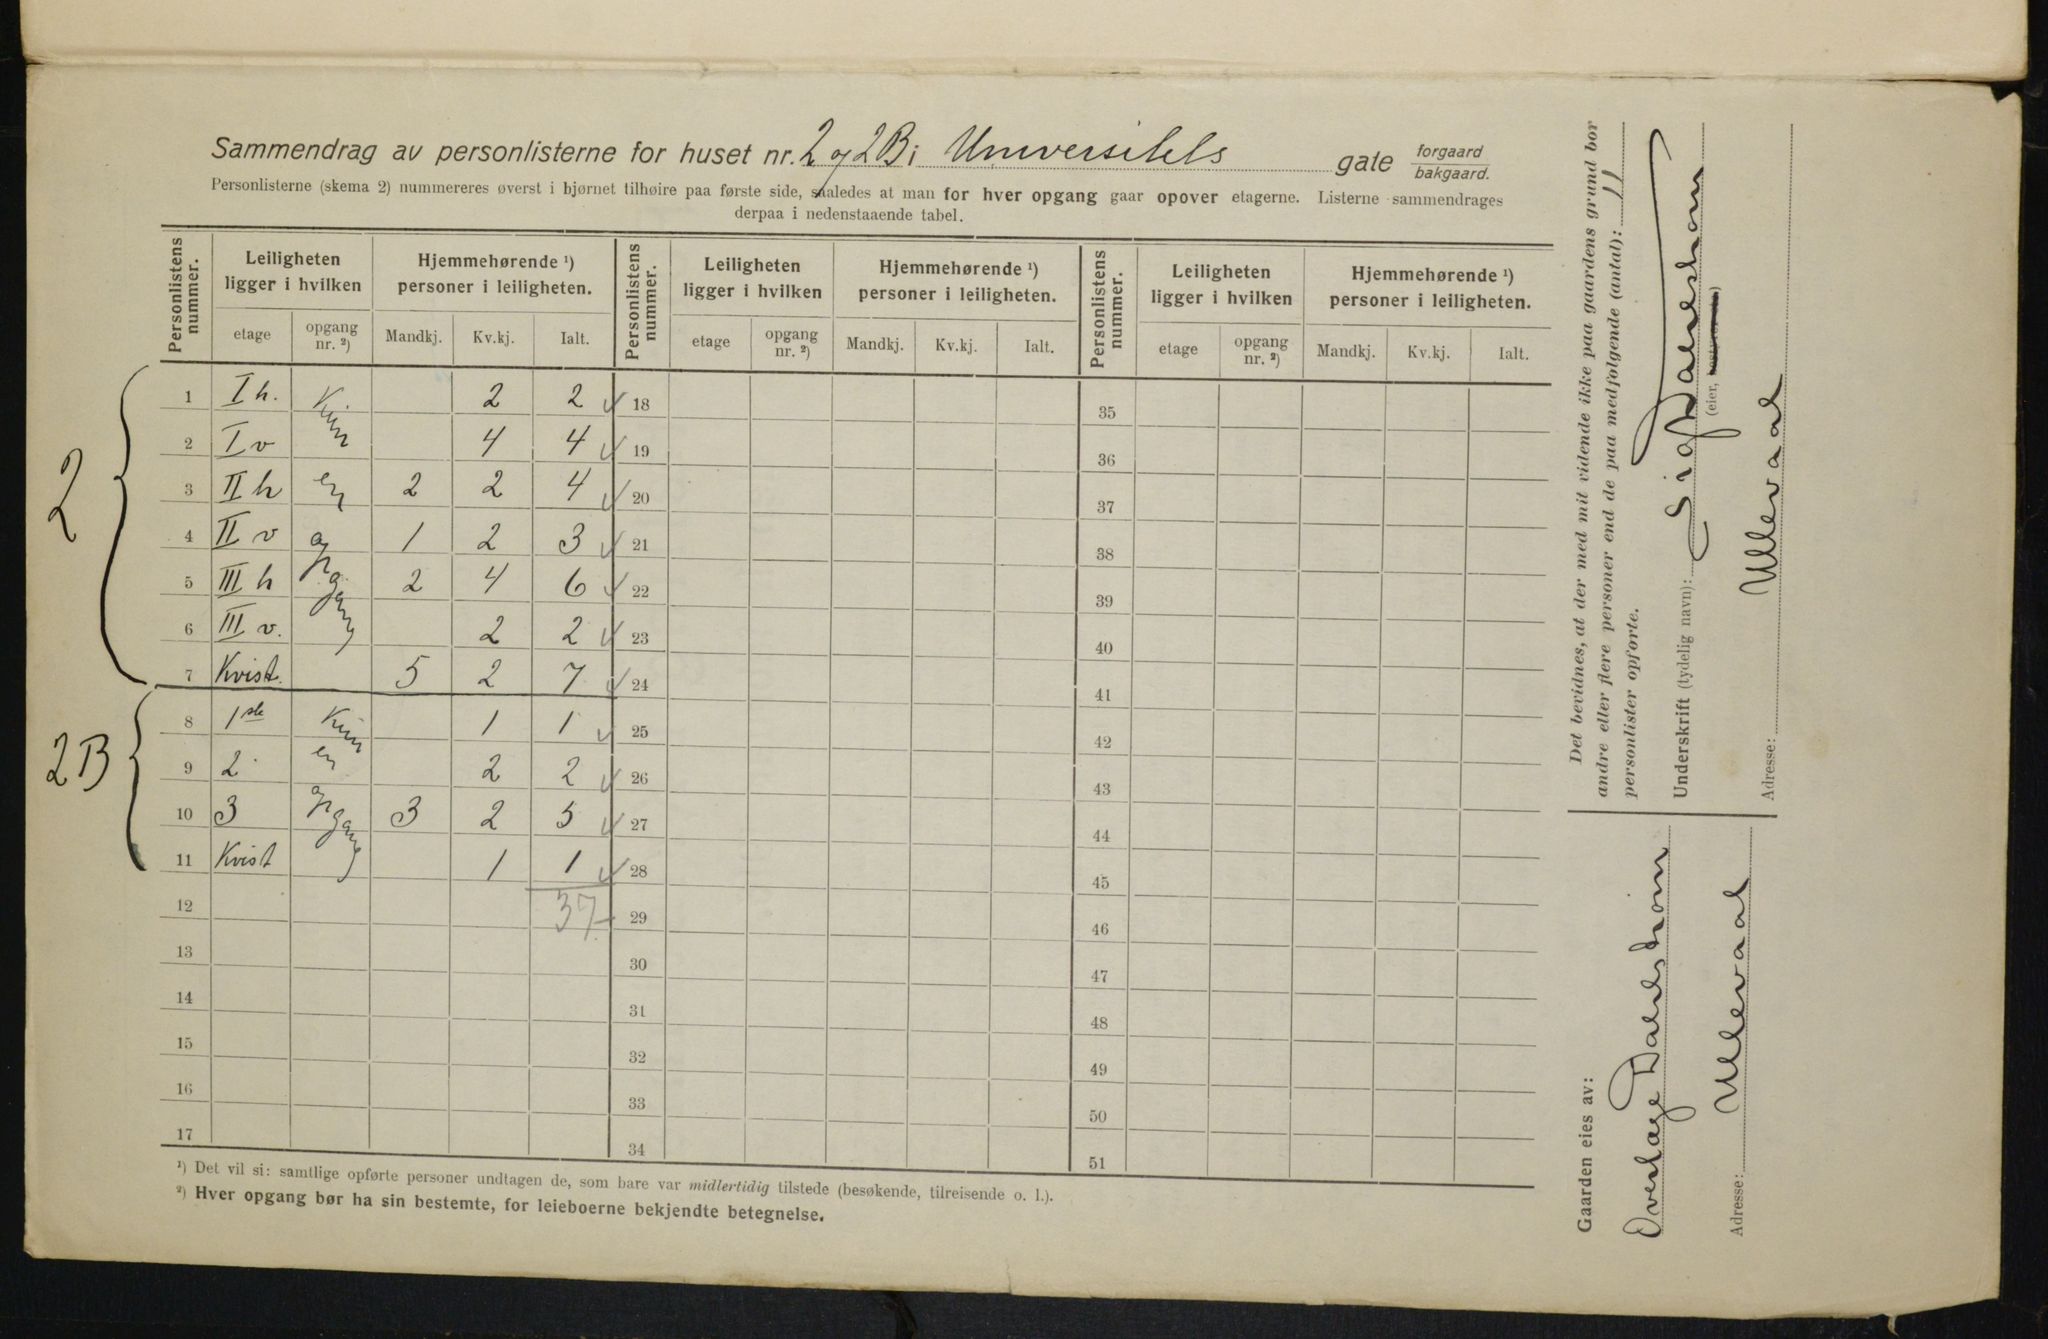 Sammendrag av personlisterne for huset nr. 2 og 2B i Universitets gate forgaard bakgaard.
Personlisterne (skema 2) nummereres øverst i hjørnet tilhøire paa første side, saaledes at man for hver opgang gaar opover etagerne. Listerne sammendrages
derpaa i nedenstaaende tabel.
Personlistens nummer. Leiligheten ligger i hvilken Hjemmehørende ¹) personer i leiligheten. Personlistens nummer. Leiligheten ligger i hvilken Hjemmehørende ¹) personer i leiligheten. Personlistens nummer. Leiligheten ligger i hvilken Hjemmehørende ¹) personer i leiligheten.
etage opgang nr. ²) Mandkj. Kv.kj. Ialt. etage opgang nr. ²) Mandkj. Kv.kj. Ialt. etage opgang nr. ²) Mandkj. Kv.kj. Ialt.
2
1 I h. Kun 2 2 18 35
2 I v 4 4 19 36
3 II h en 2 2 4 20 37
4 II v opgang 1 2 3 21 38
5 III h 2 4 6 22 39
6 III v. 2 2 23 40
7 Kvist. 5 2 7 24 41
2B
8 1ste Kun 1 1 25 42
9 2. en 2 2 26 43
10 3 opgang 3 2 5 27 44
11 Kvist 1 1 28 45
12 37 29 46
13 30 47
14 31 48
15 32 49
16 33 50
17 34 51
¹) Det vil si: samtlige opførte personer undtagen de, som bare var midlertidig tilstede (besøkende, tilreisende o. l.).
²) Hver opgang bør ha sin bestemte, for leieboerne bekjendte betegnelse.
Det bevidnes, at der med mit vidende ikke paa gaardens grund bor
andre eller flere personer end de paa medfølgende (antal): 11
personlister opførte.
Underskrift (tydelig navn): Sig Dahlstrøm
(eier,
Adresse: Ullevaal
Gaarden eies av:
Overlæge Dahlstrøm
Adresse: Ullevaal